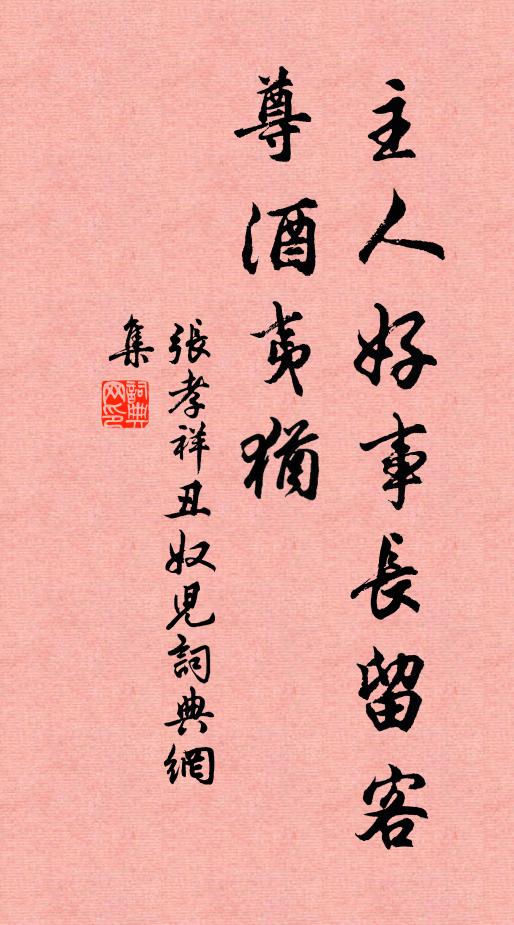 主人好事長留客
尊酒夷猶
張孝祥丑奴兒詞典網
集
詞典網印